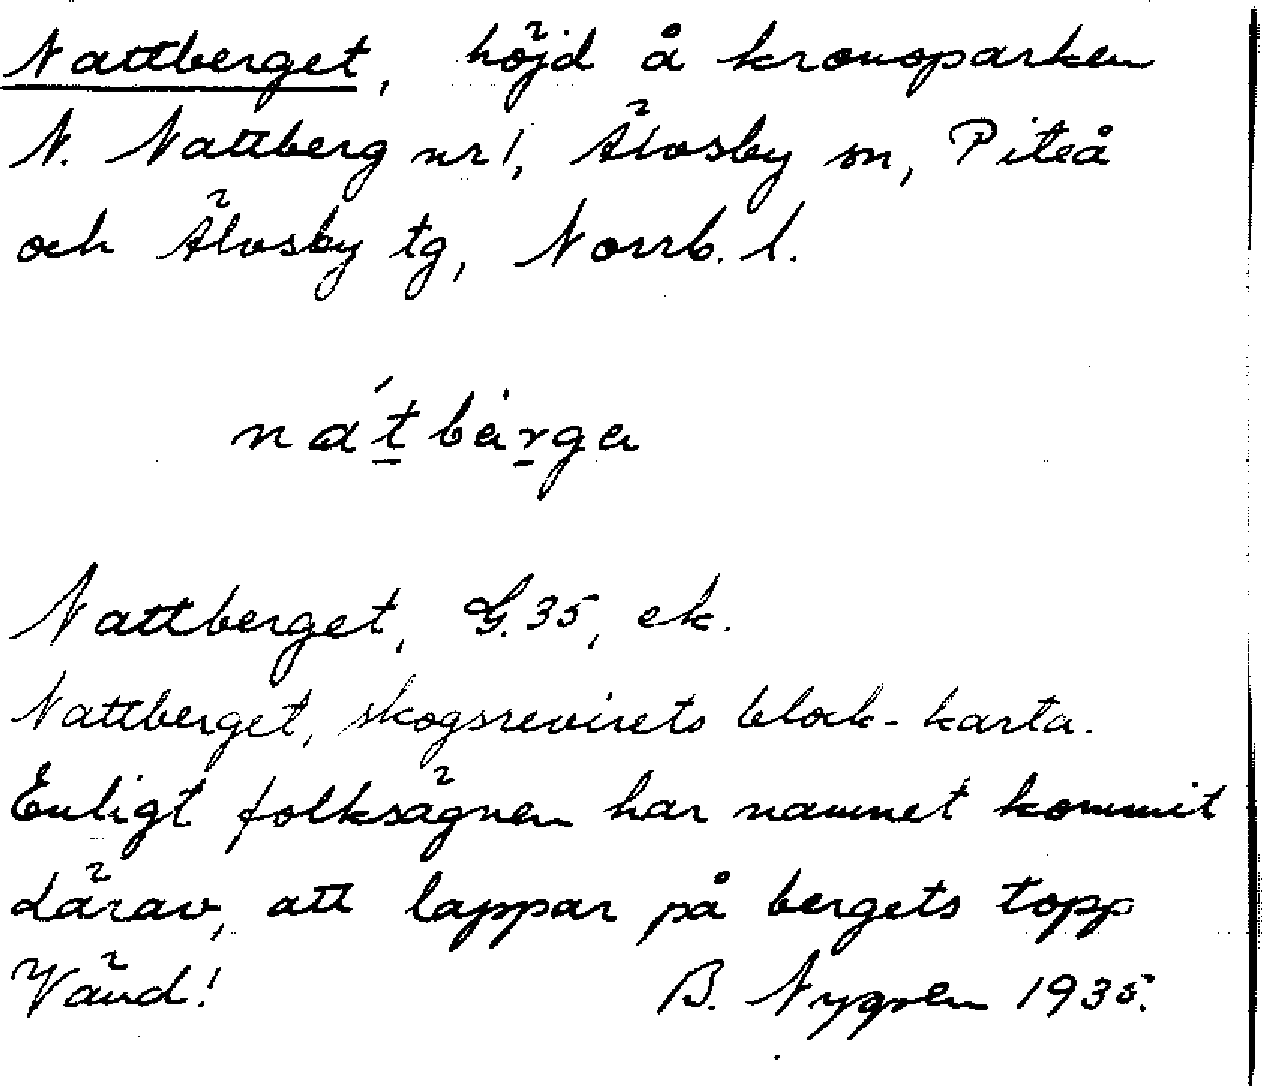 Nattberget, höjd å kronoparken
N. Nattberg nr 1, Älvsby sn, Piteå
och Älvsby tg, Norrb. l.
nát̠bärga
Nattberget, G.35, ek.
Nattberget, skogsrevirets block-karta.
Enligt folksägnen har namnet kommit
därav, att lappar på bergets topp
Vänd! B. Nygren 1935.